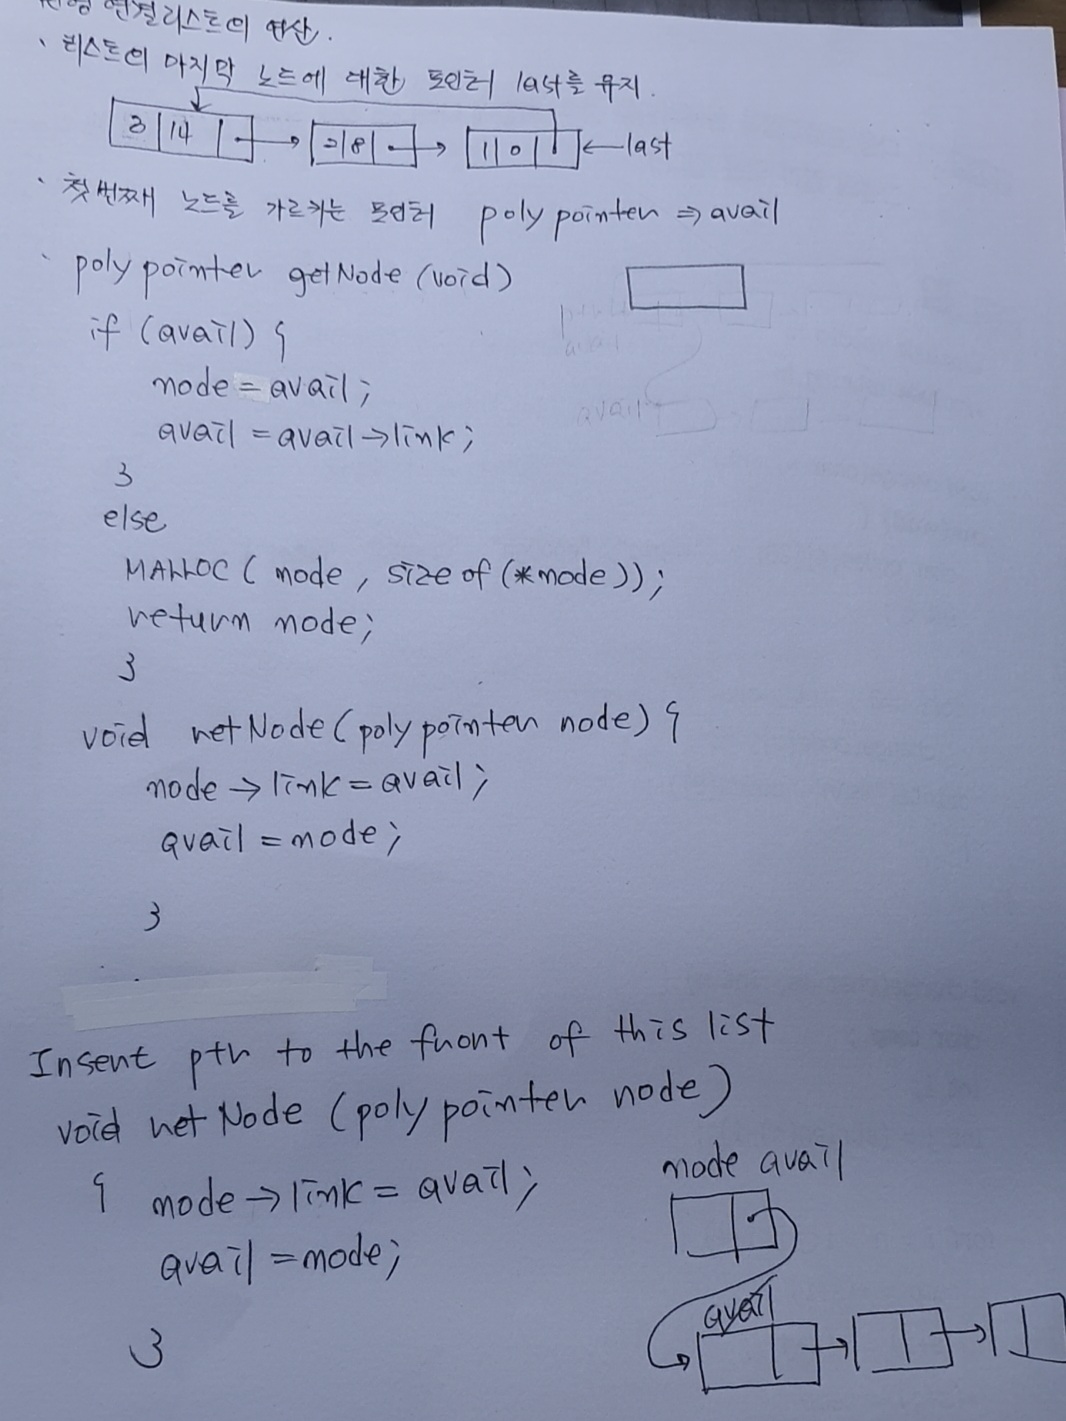 연결리스트의 연산.
· 리스트의 마지막 노드에 대한 포인터 last를 유지.
3 | 14 | → 2 | 8 | → 1 | 0 | ← last
· 첫번째 노드를 가르키는 포인터 poly pointer ⇒ avail
· poly pointer getNode (void)
if (avail) {
node = avail;
avail = avail → link;
}
else
MALLOC ( node , size of (*node));
return node;
}
void retNode (poly pointer node) {
node → link = avail;
avail = node;
}
Insert ptr to the front of this list
void ret Node (poly pointer node)
{ node → link = avail;
node avail
avail = node;
avail
}